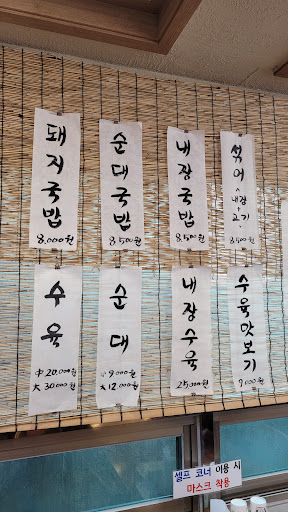 돼지국밥
8,000원
순대국밥
8,500원
내장국밥
8,500원
섞어
내장+고기
8,500원
수육
中 20,000원
大 30,000원
순대
中 9,000원
大 12,000원
내장수육
25,000원
수육맛보기
9,000원
셀프 코너 이용 시
마스크 착용